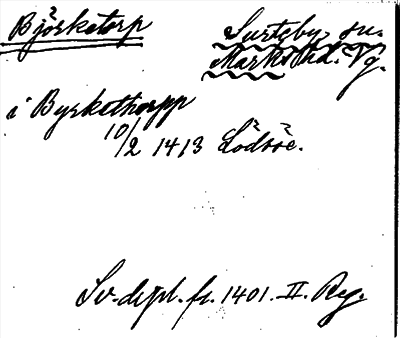 Björketorp
Surteby sn.
Marks hd. Vg.
i Byrkethorpp
10/2 1413 Lödöse.
Sv. dipl. fr. 1401. II. Reg.